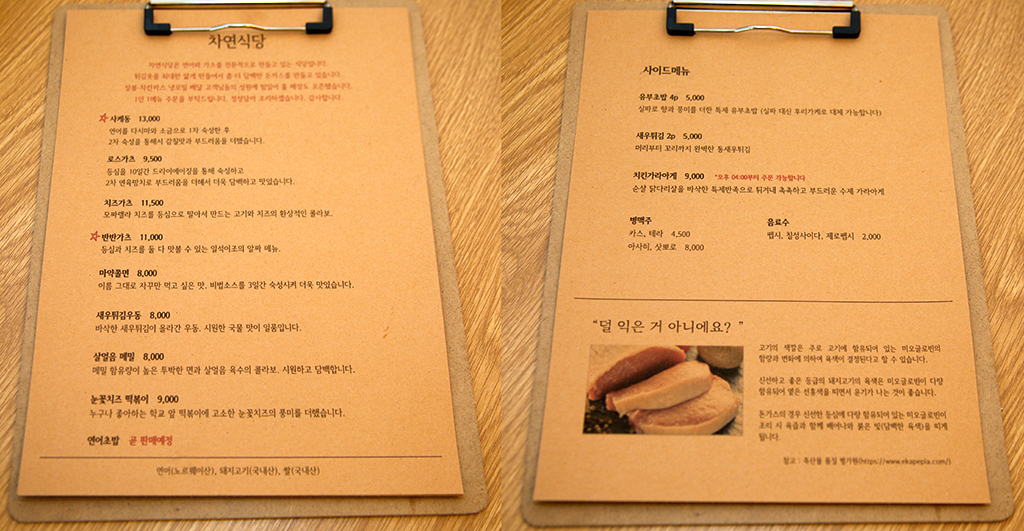 차연식당
차연식당은 연어와 가츠를 전문적으로 만들고 있는 식당입니다.
튀김옷을 최대한 얇게 만들어서 좀 더 담백한 돈카츠를 만들고 있습니다.
1인 1메뉴 주문을 부탁드립니다. 정성담아 조리하겠습니다. 감사합니다.
☆ 사케동 13,000
연어를 다시마와 소금으로 1차 숙성한 후
2차 숙성을 통해서 감칠맛과 부드러움을 더했습니다.
로스가츠 9,500
등심을 10일간 드라이에이징을 통해 숙성하고
2차 연육망치로 부드러움을 더해서 더욱 담백하고 맛있습니다.
치즈가츠 11,500
모짜렐라 치즈를 등심으로 말아서 만드는 고기와 치즈의 환상적인 콜라보.
☆ 반반가츠 11,000
등심과 치즈를 둘 다 맛볼 수 있는 일석이조의 알짜 메뉴.
마약쫄면 8,000
이름 그대로 자꾸만 먹고 싶은 맛. 비법소스를 3일간 숙성시켜 더욱 맛있습니다.
새우튀김우동 8,000
바삭한 새우튀김이 올라간 우동. 시원한 국물 맛이 일품입니다.
살얼음 메밀 8,000
메밀 함유량이 높은 투박한 면과 살얼음 육수의 콜라보. 시원하고 담백합니다.
눈꽃치즈 떡볶이 9,000
누구나 좋아하는 학교 앞 떡볶이에 고소한 눈꽃치즈의 풍미를 더했습니다.
연어초밥 곧 판매예정
연어(노르웨이산), 돼지고기(국내산), 쌀(국내산)
사이드메뉴
유부초밥 4p 5,000
실파로 향과 풍미를 더한 특제 유부초밥 (실파 대신 후리가케로 대체 가능합니다)
새우튀김 2p 5,000
머리부터 꼬리까지 완벽한 통새우튀김
치킨가라아게 9,000 *오후 04:00부터 주문 가능합니다
순살 닭다리살을 바삭한 특제반죽으로 튀겨내 촉촉하고 부드러운 수제 가라아게
병맥주 음료수
카스, 테라 4,500 펩시, 칠성사이다, 제로펩시 2,000
아사히, 삿뽀로 8,000
“덜 익은 거 아니에요? ”
고기의 색깔은 주로 고기에 함유되어 있는 미오글로빈의
함량과 변화에 의하여 육색이 결정된다고 할 수 있습니다.
신선하고 좋은 등급의 돼지고기의 육색은 미오글로빈이 다량
함유되어 옅은 선홍색을 띠면서 윤기가 나는 것이 좋습니다.
돈가스의 경우 신선한 등심에 다량 함유되어 있는 미오글로빈이
조리 시 육즙과 함께 배어나와 붉은 빛(담백한 육색)을 띠게
됩니다.
참고 : 축산물 품질 평가원(https://www.ekapepia.com/)